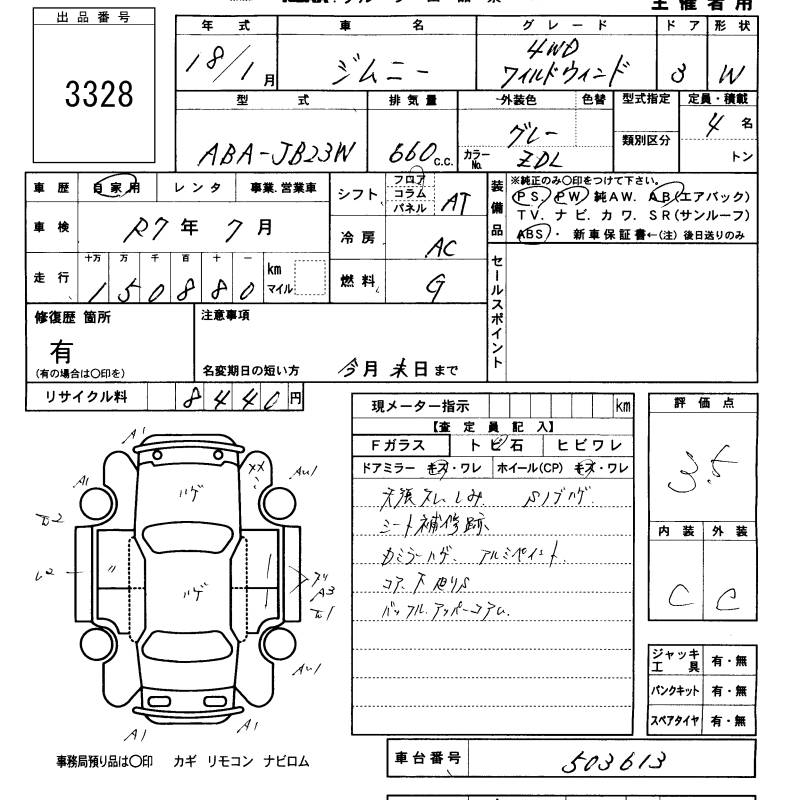 主催者用
出品番号
3328
年式 車名 グレード ドア 形状
18/1月 ジムニー 4WD ワイルドウィンド 3 W
型式 排気量 外装色 色替 型式指定 定員・積載
ABA-JB23W 660 c.c. グレー 類別区分 4名
カラーNo. ZDL トン
車歴 自家用 レンタ 事業.営業車
車検 R7年7月
走行 十万 万 千 百 十 一
150880 km マイル
シフト フロア コラム パネル AT
冷房 AC
燃料 G
装備品 ※純正のみ〇印をつけて下さい。
PS. PW 純AW. AB(エアバック)
TV. ナビ. カワ. SR(サンルーフ)
ABS・ 新車保証書←(注)後日送りのみ
セールスポイント
修復歴 箇所
有
(有の場合は〇印を)
注意事項
名変期日の短い方 今月末日まで
リサイクル料 8440円
現メーター指示 km
【査定員記入】
Fガラス トビ石 ヒビワレ
ドアミラー キズ・ワレ ホイール(CP) キズ・ワレ
天張スレ.しみ Sノブハゲ.
シート補修跡
カミラーハゲ. アルミペイント.
コア.下回りS
バッフル.アッパーコアム.
評価点
3.5
内装 外装
C C
ジャッキ工具 有・無
パンクキット 有・無
スペアタイヤ 有・無
A1
A1
XX
AU1
ハゲ
A3
ハゲ
AU1
A1
A1
事務局預り品は〇印 カギ リモコン ナビロム
車台番号 503613